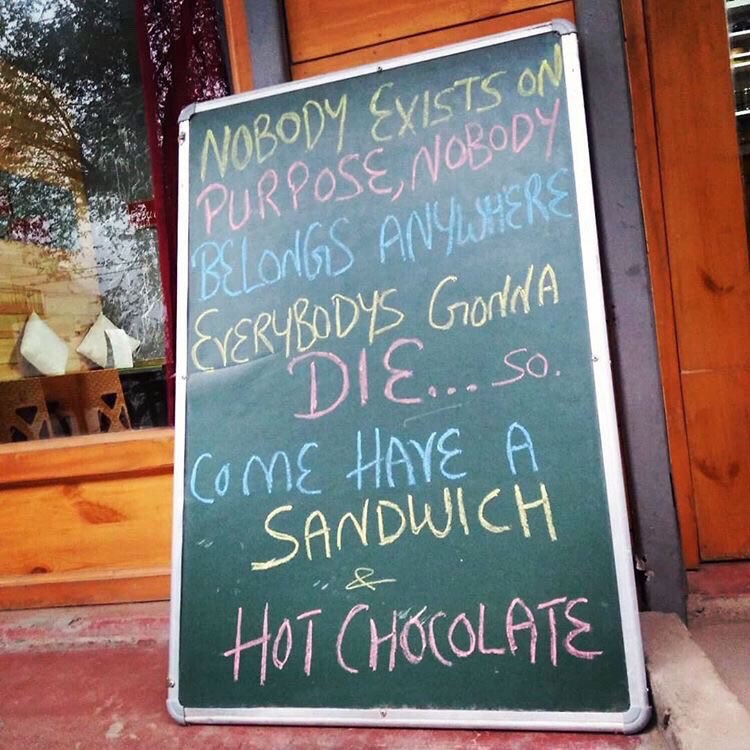 NOBODY EXISTS ON
PURPOSE, NOBODY
BELONGS ANYWHERE
EVERYBODYS GONNA
DIE... SO.
COME HAVE A
SANDWICH
&
HOT CHOCOLATE